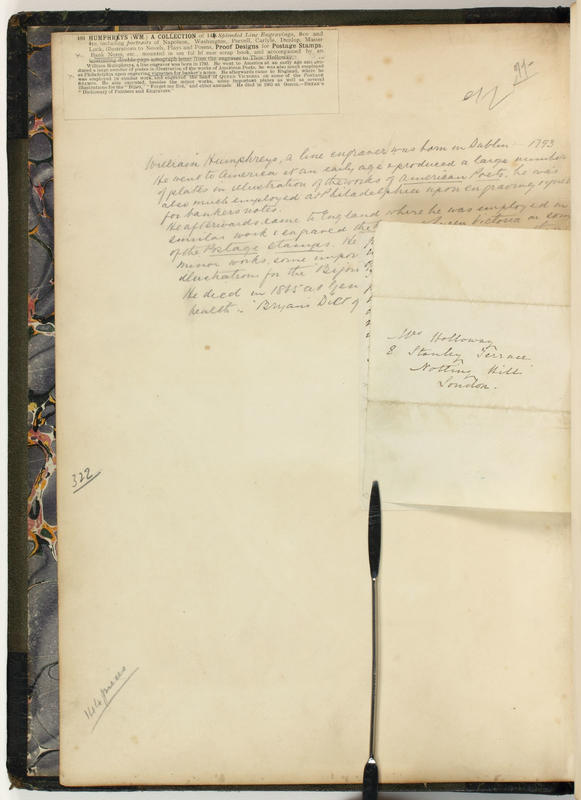 HUMPHREYS (WM.) A COLLECTION of 144 Splendid Line Engravings, 8vo and
4to, including portraits of Napoleon, Washington, Purcell, Carlyle, Dunlop, Master
Lock, illustrations to Novels, Plays and Poems, Proof Designs for Postage Stamps,
Bank Notes, etc., mounted in an scrap book, and accompanied by an
double-page autograph letter from the engraver to Thos. Holloway
William Humphreys, a line engraver was born in 1793. He went to America at an early age and pro-
duced a large number of plates in illustration of the works of American Poets, he was also much employed
at Philadelphia upon engraving vignettes for banker's notes. He afterwards came to England, where he
was employed in similar work, and engraved the head of QUEEN VICTORIA on some of the POSTAGE
STAMPS. He also executed, besides the minor works, some important plates as well as several
illustrations for the "Bijou," "Forget me Not," and other annuals. He died in 1865 at Genoa.—BRYAN'S
"Dictionary of Painters and Engravers."
William Humphreys, a line engraver was born in Dublin - 1793
He went to America at an early age & produced a large number
of plates in illustration of the works of American Poets, he was
also much employed at Philadelphia upon engraving
for bankers notes.
He afterwards came to England where he was employed on
similar work & engraved the Queen Victoria on some
of the Postage Stamps. He
minor works, some impor
illustrations for the "Bijou
He died in 1865 at Gen
health - "Bryan's Dict of
Mrs Holloway
8 Stanley Terrace
Notting Hill
London.
322
144 pieces